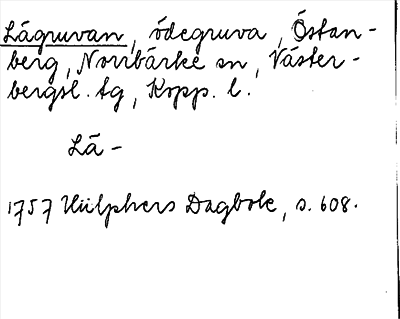 Lågruvan, ödegruva, Östan-
berg, Norrbärke sn, Väster-
bergsl. tg, Kopp. l.
Lå-
1757 Hülphers Dagbok, s. 608.